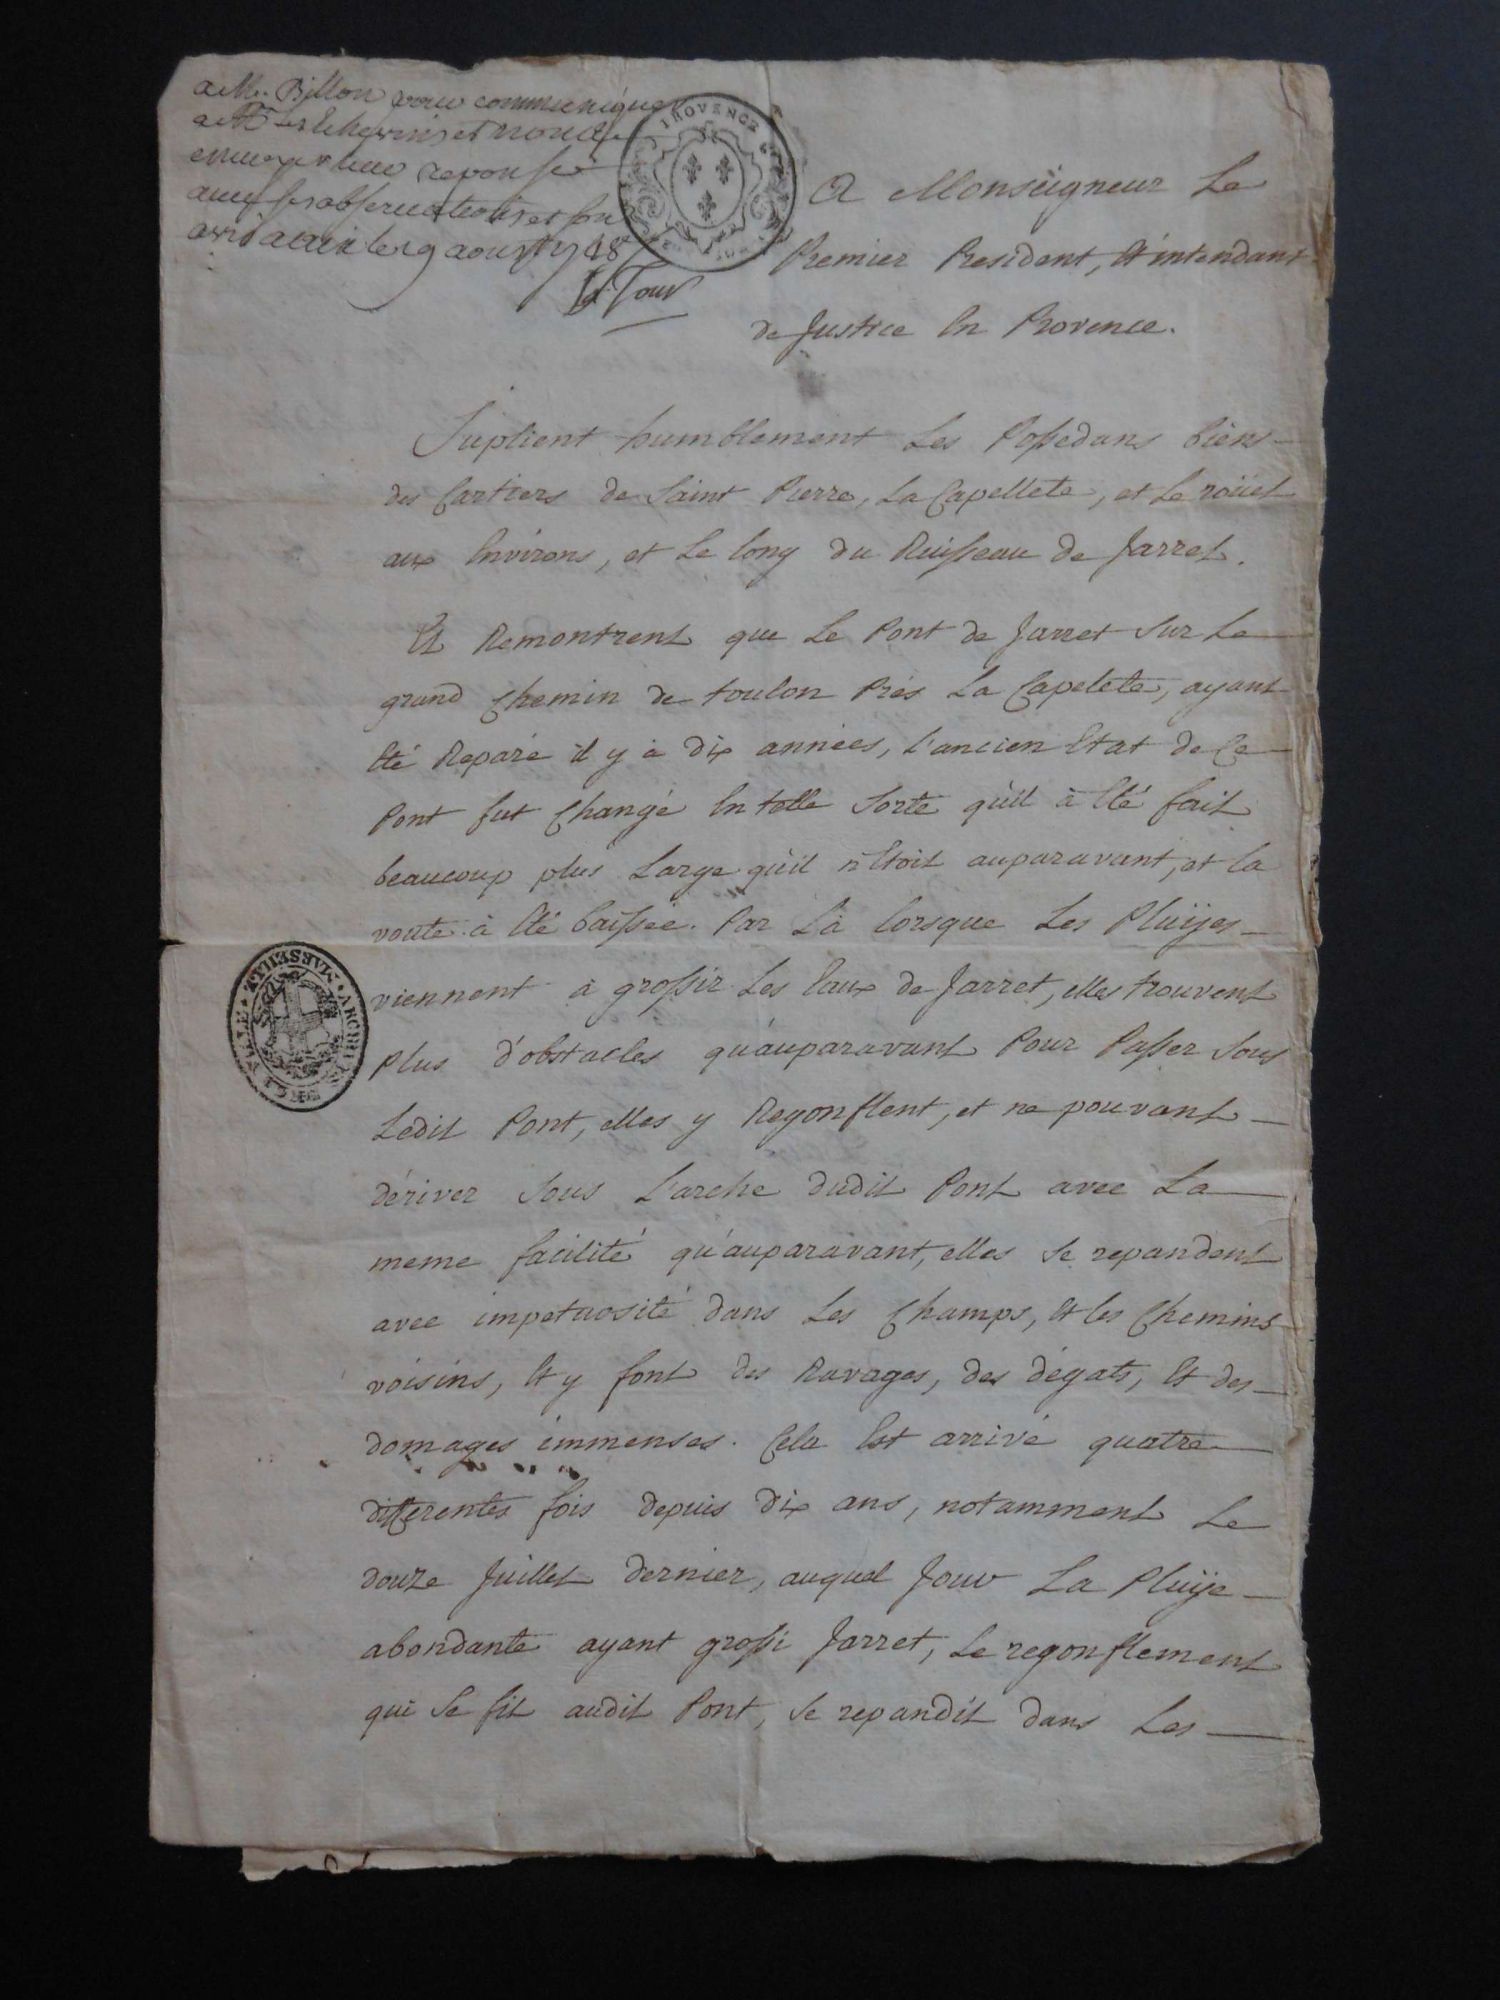 a Mr. Billon pour communiquer
a Mrs les Echevins et nous
envoyer leur reponse
avec ses observations et son
avis a aix le 9 aoust 1748
La Tour
PROVENCE
A Monseigneur Le
Premier President, Et intendant
de Justice En Provence.
Suplient humblement Les Possedans biens
des Cartiers de Saint Pierre, La Capellete, et Le roüet
aux Environs, et Le long du Ruisseau de Jarret.
Et Remontrent que Le Pont de Jarret Sur Le
grand Chemin de toulon Prés La Capelete, ayant
Eté Reparé il y à dix années, L'ancien Etat de Ce
Pont fut Changé En telle Sorte qu'il à Eté fait
beaucoup plus Large qu'il n'Etoit auparavant, et La
voute à Eté baissée. Par Là lorsque Les Pluÿes
viennent à grossir Les Eaux de Jarret, elles trouvent
Plus d'obstacles qu'auparavant Pour Passer Sous
Ledit Pont, elles y Regonflent, et ne pouvant
dériver Sous L'arche dudit Pont avec La
meme facilité qu'auparavant, elles Se repandent
avec impetuosité dans Les Champs, Et les Chemins
voisins, Et y font des Ravages, des dégats, Et des
domages immenses. Cela Est arrivé quatre
differentes fois depuis dix ans, notamment Le
douze Juillet dernier, auquel Jour La Pluÿe
abondante ayant grossi Jarret, Le regonflement
qui Se fit audit Pont, Se repandit dans Les
ARCHIVES DE LA VILLE · MARSEILLE